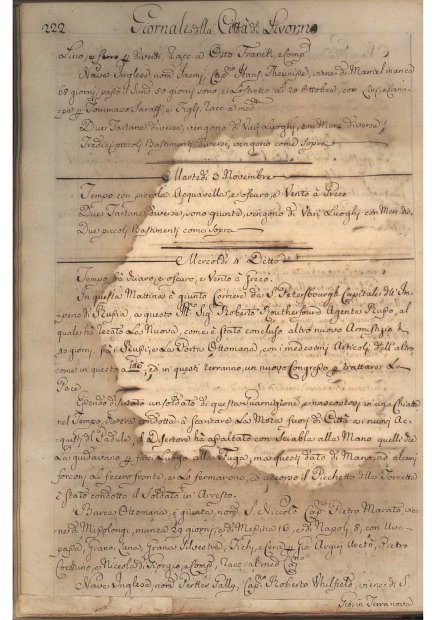 222 Giornali della Città di Livorno
Lino, e ferro diversi, Racc. a Otto Franck, e Comp.
Nave Inglese nom. Capno. Hans Theunise, viene di Marzel manca
68 giorni, passò il Sund 30 giorni sono, e lo Stretto li 20 Ottobre, con Lino, e Cana-
pe Tommaso Saraff, e Figli, racc. a med.
Due Tartane diverse, vengono di Varj Luoghi, con Merc. diverse
Tredici piccoli Bastimenti diversi, vengono come Sopra
Martedì 3 Novembre
Tempo con piccola Acquarella, e oscuro, e Vento à Greco
Due Tartane diverse, sono giunte, vengono di Varj Luoghi con Mer. div.
Due piccoli Bastimenti come Sopra
Mercoldì 4 Detto
Tempo frà chiaro, e oscuro, e Vento à Greco
In questa Mattina è giunto Corriere da S. Petersbourgh Capitale dell' Im-
perio di Russia, a questo Sig. Roberto Routherfourd Agente Russo, al
quale hà recato La Nuova, come è stato concluso altro nuovo Armistizio di
giorni frà i Russi, e La Porta Ottomana, con i medesimi Articoli dell' altro
come in questo a 186, ed in questi terranno un nuovo Congresso trattare La
Pace
Essendo disertato un Soldato di questa Guarnigione, e nascostosi in una Chiatta
nel Tempo, che era condotta à scaricare La Mota fuori di Città ne' nuovi Ac-
quisti del Padule, il Disertore hà assaltato con Sciabla alla Mano quelli che
La guidavano farsi Largo alla Fuga, ma questi dato di Mano ad alcuni
forconi Li fecero fronte, e Lo fermarono, ed accorso il Picchetto della Torretta
è stato condotto il Soldato in Arresto.
Barca Ottomana, è giunta, nom. S. Nicolò Capno. Pietro Marato, vie-
ne di Missolongi, manca 29 giorni, e di Messina 16, e di Napoli 8, con Uva-
passa, Grano, Lana, Grana Silvestre, Fichi, e Cera Gio. Argiri Areto, Pietro
e Niccola di Giorgio, e Comp., Racc. al med.
Nave Inglese, nom. Pertter Sally, Capno. Roberto Whilfield, viene di S.
Gios in Terra nova